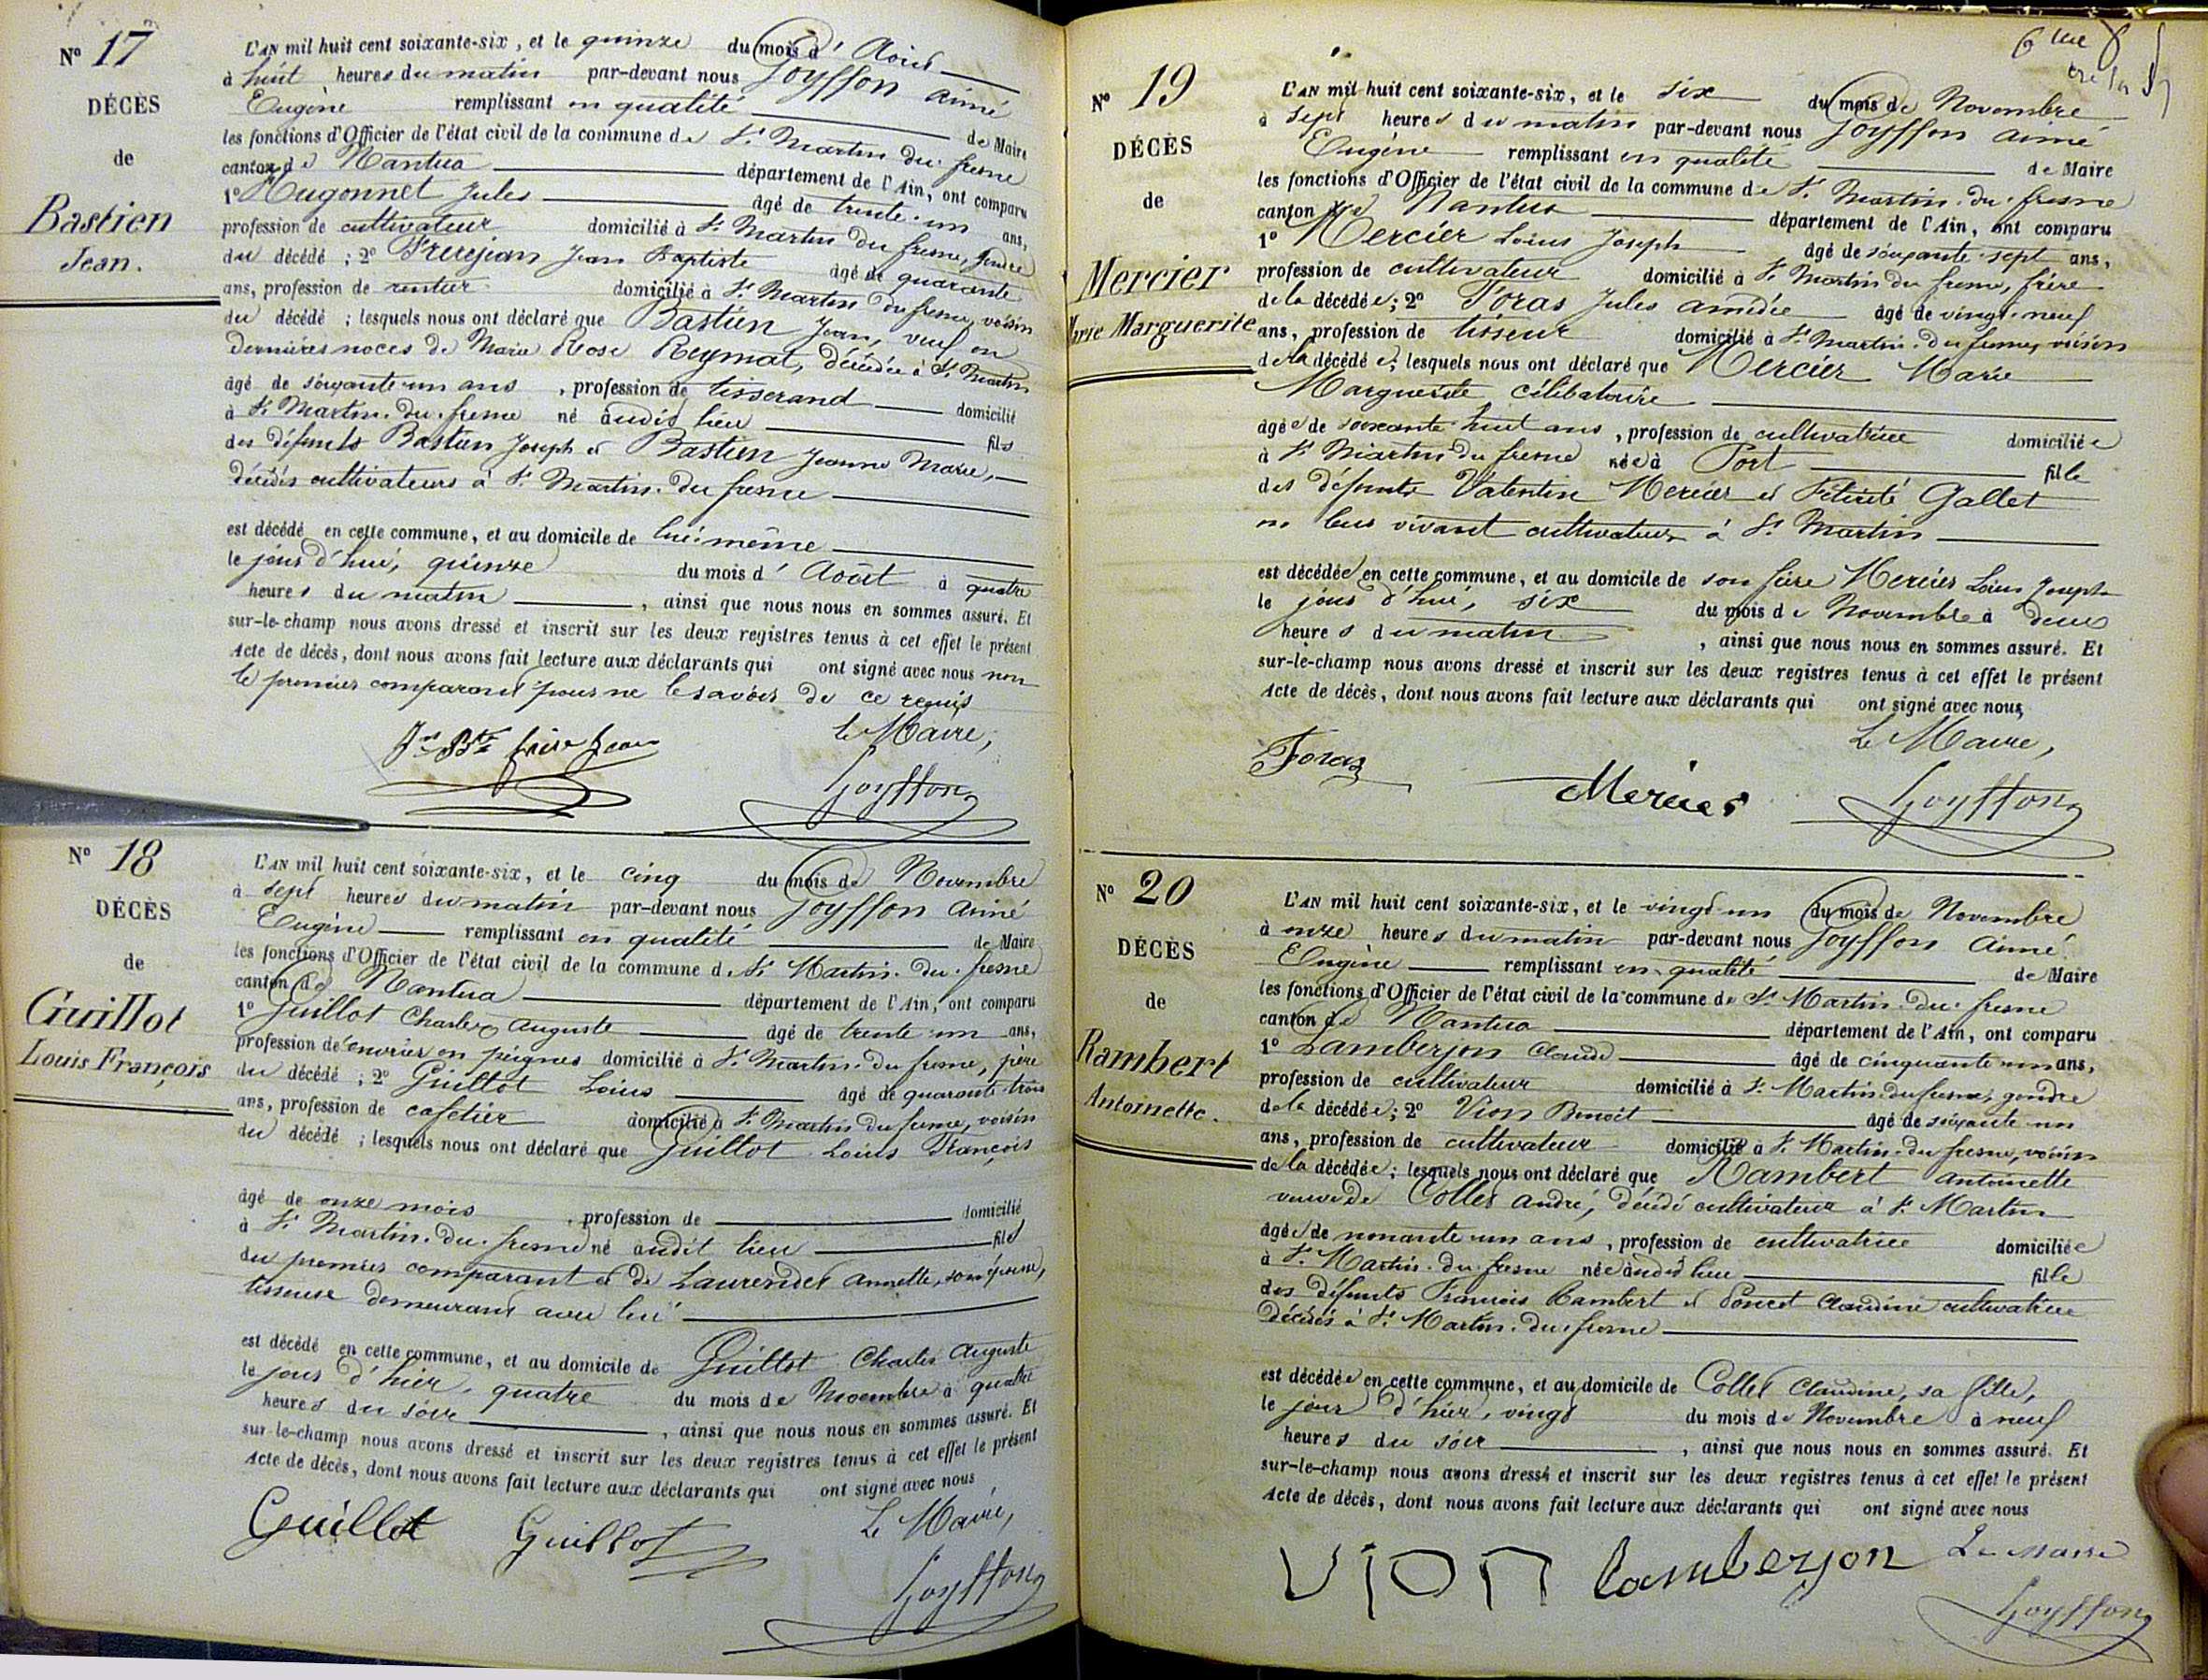 Nº 17
DÉCÈS
de
Bastien
Jean.
L'AN mil huit cent soixante-six, et le quinze du mois d' Août
à huit heures du matin par-devant nous Goyffon Aimé
Eugène remplissant en qualité de Maire
les fonctions d'Officier de l'état civil de la commune de St Martin du fresne
canton de Nantua département de l'Ain, ont comparu
1º Hugonnet Jules âgé de trente-un ans,
profession de cultivateur domicilié à St Martin du fresne, gendre
du décédé ; 2º Frerejean Jean Baptiste âgé de quarante
ans, profession de rentier domicilié à St Martin du fresne, voisin
du décédé ; lesquels nous ont déclaré que Bastien Jean, veuf en
dernières noces de Marie Rose Reymat, décédée à St Martin
âgé de soixante-un ans, profession de tisserand domicilié
à St Martin-du-fresne né audit lieu fils
des défunts Bastien Joseph et Bastien Jeanne Marie,
décédés cultivateurs à St Martin-du fresne
est décédé en cette commune, et au domicile de lui-même
le jour d'hui, quinze du mois d' Août à quatre
heures du matin, ainsi que nous nous en sommes assuré. Et
sur-le-champ nous avons dressé et inscrit sur les deux registres tenus à cet effet le présent
Acte de décès, dont nous avons fait lecture aux déclarants qui ont signé avec nous non
le premier comparant pour ne le savoir de ce requis
Jn Bte frère Jean
le Maire,
Goyffon
Nº 18
DÉCÈS
de
Guillot
Louis François
L'AN mil huit cent soixante-six, et le cinq du mois de Novembre
à sept heures du matin par-devant nous Goyffon Aimé
Eugène remplissant en qualité de Maire
les fonctions d'Officier de l'état civil de la commune de St Martin-du-fresne
canton de Nantua département de l'Ain, ont comparu
1º Guillot Charles Auguste âgé de trente-un ans,
profession de ouvrier en peignes domicilié à St Martin-du fresne, père
du décédé ; 2º Guillot Louis âgé de quarante-trois
ans, profession de cafetier domicilié à St Martin du fresne, voisin
du décédé ; lesquels nous ont déclaré que Guillot Louis François
âgé de onze mois, profession de domicilié
à St Martin-du-fresne né audit lieu fils
du premier comparant et de Laurendet Annette, son épouse,
tisseuse demeurant avec lui
est décédé en cette commune, et au domicile de Guillot Charles Auguste
le jour d'hier, quatre du mois de Novembre à quatre
heures du soir, ainsi que nous nous en sommes assuré. Et
sur-le-champ nous avons dressé et inscrit sur les deux registres tenus à cet effet le présent
Acte de décès, dont nous avons fait lecture aux déclarants qui ont signé avec nous
Guillot Guillot
Le Maire,
Goyffon
Nº 19
DÉCÈS
de
Mercier
Marie Marguerite
L'AN mil huit cent soixante-six, et le six du mois de Novembre
à sept heures du matin par-devant nous Goyffon Aimé
Eugène remplissant en qualité de Maire
les fonctions d'Officier de l'état civil de la commune de St Martin-du-fresne
canton de Nantua département de l'Ain, ont comparu
1º Mercier Louis Joseph âgé de soixante-sept ans,
profession de cultivateur domicilié à St Martin du fresne, frère
de la décédée ; 2º Foras Jules Amédée âgé de vingt-neuf
ans, profession de tisseur domicilié à St Martin-du fresne, voisin
de la décédée ; lesquels nous ont déclaré que Mercier Marie
Marguerite célibataire
âgée de soixante-huit ans, profession de cultivatrice domiciliée
à St Martin du fresne née à Port fille
des défunts Valentin Mercier et Félicité Gallet
en leur vivant cultivateurs à St Martin
est décédée en cette commune, et au domicile de son frère Mercier Louis Joseph
le jour d'hui, six du mois de Novembre à deux
heures du matin, ainsi que nous nous en sommes assuré. Et
sur-le-champ nous avons dressé et inscrit sur les deux registres tenus à cet effet le présent
Acte de décès, dont nous avons fait lecture aux déclarants qui ont signé avec nous
Le Maire,
Foraz Mercier Goyffon
Nº 20
DÉCÈS
de
Rambert
Antoinette.
L'AN mil huit cent soixante-six, et le vingt-un du mois de Novembre
à onze heures du matin par-devant nous Goyffon Aimé
Eugène remplissant en qualité de Maire
les fonctions d'Officier de l'état civil de la commune de St Martin-du-fresne
canton de Nantua département de l'Ain, ont comparu
1º Lamberjon Claude âgé de cinquante-un ans,
profession de cultivateur domicilié à St Martin-du fresne, gendre
de la décédée ; 2º Vion Benoit âgé de soixante-un
ans, profession de cultivateur domicilié à St Martin-du fresne, voisin
de la décédée ; lesquels nous ont déclaré que Rambert Antoinette
veuve de Collet André, décédé cultivateur à St Martin
âgée de nonante-un ans, profession de cultivatrice domiciliée
à St Martin-du-fresne née audit lieu fille
des défunts François Rambert et Poncet Claudine cultivatrice
décédés à St Martin-du-fresne
est décédée en cette commune, et au domicile de Collet Claudine, sa fille,
le jour d'hier, vingt du mois de Novembre à neuf
heures du soir, ainsi que nous nous en sommes assuré. Et
sur-le-champ nous avons dressé et inscrit sur les deux registres tenus à cet effet le présent
Acte de décès, dont nous avons fait lecture aux déclarants qui ont signé avec nous
Vion Lamberjon Le Maire
Goyffon